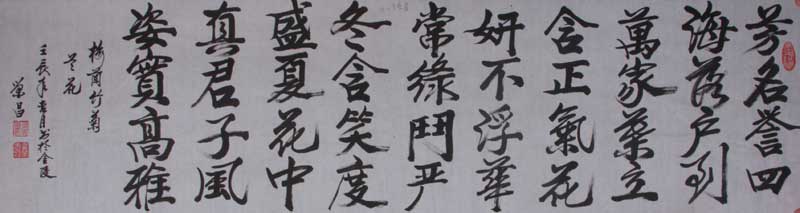 芳名誉四
海落户到
萬家葉立
含正氣花
妍不浮華
常綠鬥严
冬含笑度
盛夏花中
真君子風
姿質高雅
梅蘭竹菊
兰花
壬辰年月书於金陵
荣昌